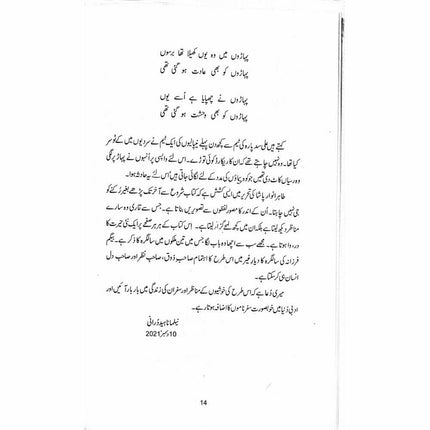 پہاڑوں میں وہ یوں کھیلا تھا برسوں
پہاڑوں کو بھی عادت ہو گئی تھی
پہاڑوں نے چھپایا ہے اُسے یوں
پہاڑوں کو بھی وحشت ہو گئی تھی
کہتے ہیں علی سدپارہ کی ٹیم سے کچھ دن پہلے نیپالیوں کی ایک ٹیم نے سردیوں میں کے ٹو سر
کیا تھا۔ وہ نہیں چاہتے تھے کہ ان کا ریکارڈ کوئی توڑے۔ اس لئے واپسی پر انہوں نے پہاڑ پر لگی
وہ رسیاں کاٹ دی تھیں جو کوہ پیماؤں کی مدد کے لئے لگائی جاتی ہیں اس لئے یہ حادثہ ہوا۔
طاہر انوار پاشا کی تحریر میں ایسی کشش ہے کہ کتاب شروع سے آخر تک پڑھے بغیر رکنے کو
جی نہیں چاہتا۔ اُن کے اندر کا مصور لفظوں سے تصویریں بناتا ہے۔ جس سے قاری وہ سارے
مناظر دیکھ لیتا ہے بلکہ ان میں کچھ لمحے گزار لیتا ہے۔ اس کتاب کے ہر ہر صفحے پر ایک نئی حیرت کا
در وا ہوتا ہے۔ مجھے سب سے اچھا وہ باب لگا جس میں تین ملکوں میں سالگرہ کا ذکر ہے۔ بیگم
فرزانہ کی سالگرہ کا دیارِ غیر میں اس طرح کا اہتمام صاحبِ ذوق، صاحبِ نظر اور صاحبِ دل
انسان ہی کر سکتا ہے۔
میری دُعا ہے کہ اس طرح کی خوشیوں کے مناظر اور سفر ان کی زندگی میں بار بار آئیں اور
ادبی دُنیا میں خوبصورت سفرناموں کا اضافہ ہوتا رہے۔
نیلما ناہید دُرانی
10 دسمبر 2021
14